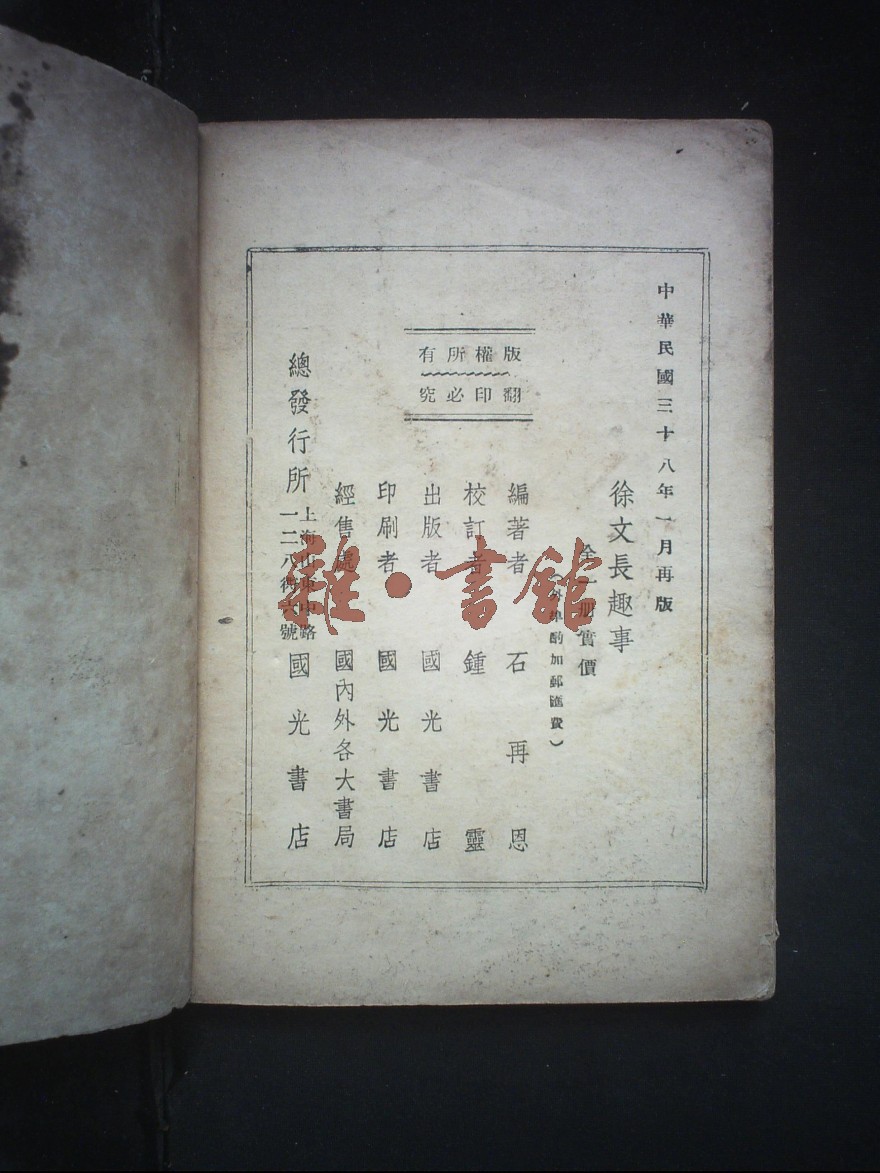 中華民國三十八年一月再版
徐文長趣事
全一册實價
(外埠酌加郵匯費)
版權所有
翻印必究
編著者 石再恩
校訂者 鍾靈
出版者 國光書店
印刷者 國光書店
經售處 國內外各大書局
總發行所 上海山東中路一二八衖六號 國光書店
雜·書館